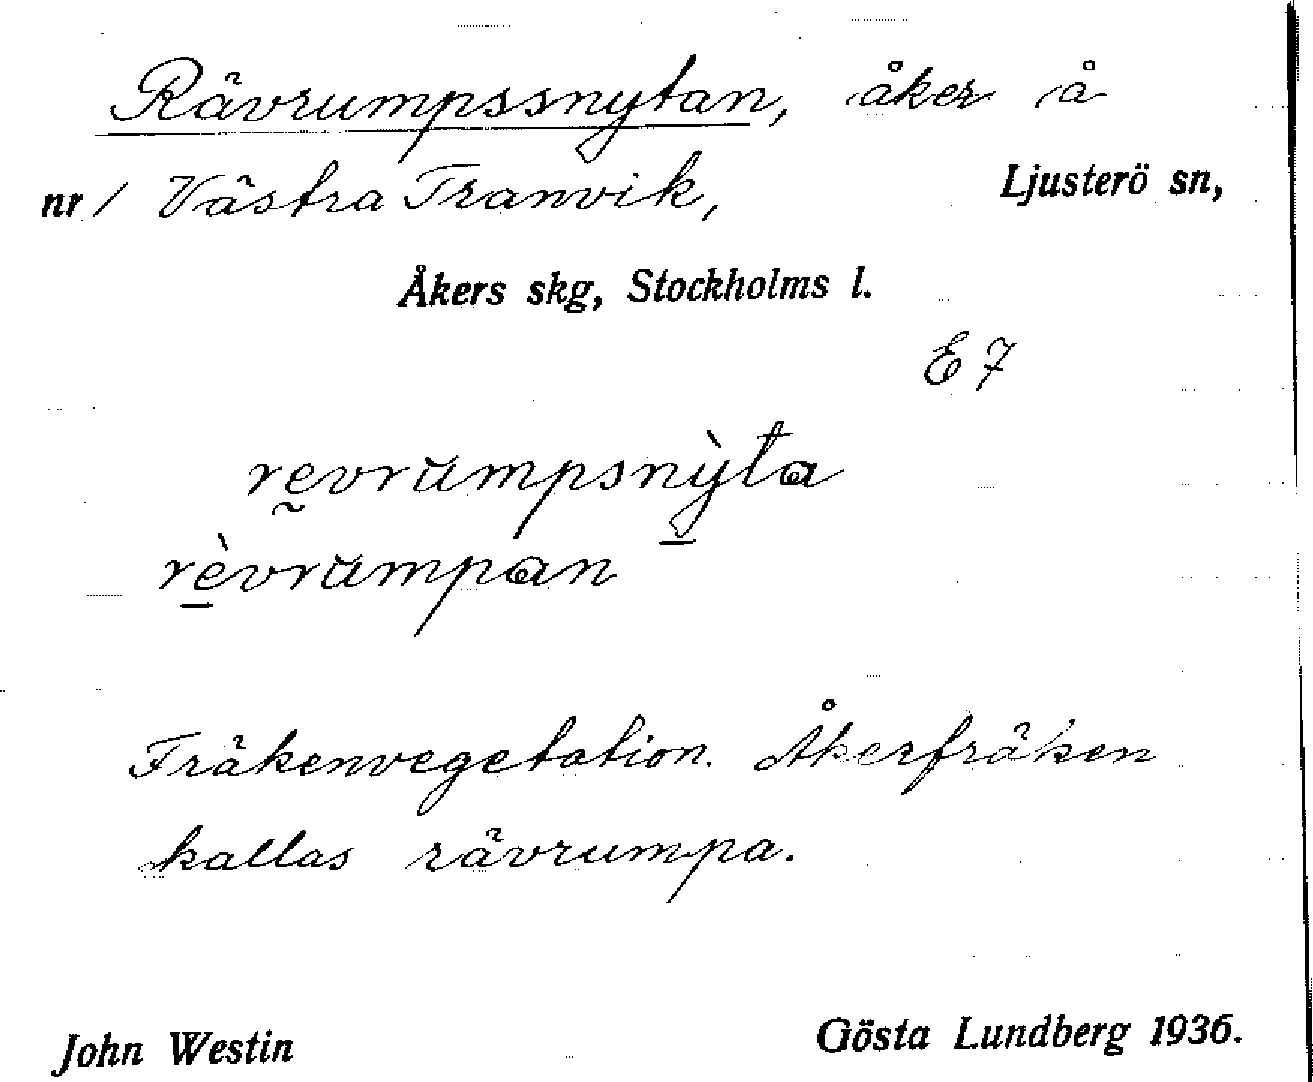 Rävrumpssnytan, åker å
nr 1 Västra Tranvik, Ljusterö sn,
Åkers skg, Stockholms l.
E7
rḛvrumpsnỳ̱ta
rè̱vrumpan
Fräkenvegetation. Åkerfräken
kallas rävrumpa.
John Westin Gösta Lundberg 1936.